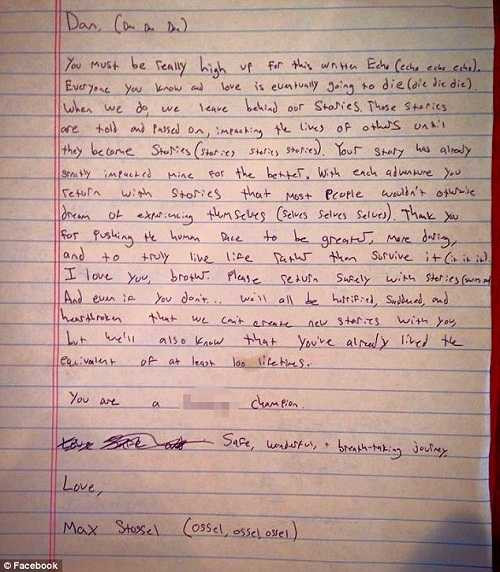 Dan, (Dan Dan Dan)
You must be really high up for this written Echo (echo echo echo).
Everyone you know and love is eventually going to die (die die die)
When we do, we leave behind our Stories. Those stories
are told and passed on, impacting the lives of others until
they become Stories (stories stories stories). Your story has already
greatly impacted mine for the better. With each adventure you
return with stories that most people wouldn't otherwise
dream of experiencing themselves (selves selves selves). Thank you
for pushing the human race to be greater, more daring,
and to truly live life rather than survive it (it it it)
I love you, brother. Please return safely with stories
And even if you don't... we'll all be horrified, saddened, and
heartbroken that we can't create new stories with you,
but we'll also know that you've already lived the
equivalent of at least 100 lifetimes.
You are a champion.
Safe, wonderful, + breath-taking journey
Love,
Max Stossel (ossel, ossel ossel)
© Facebook